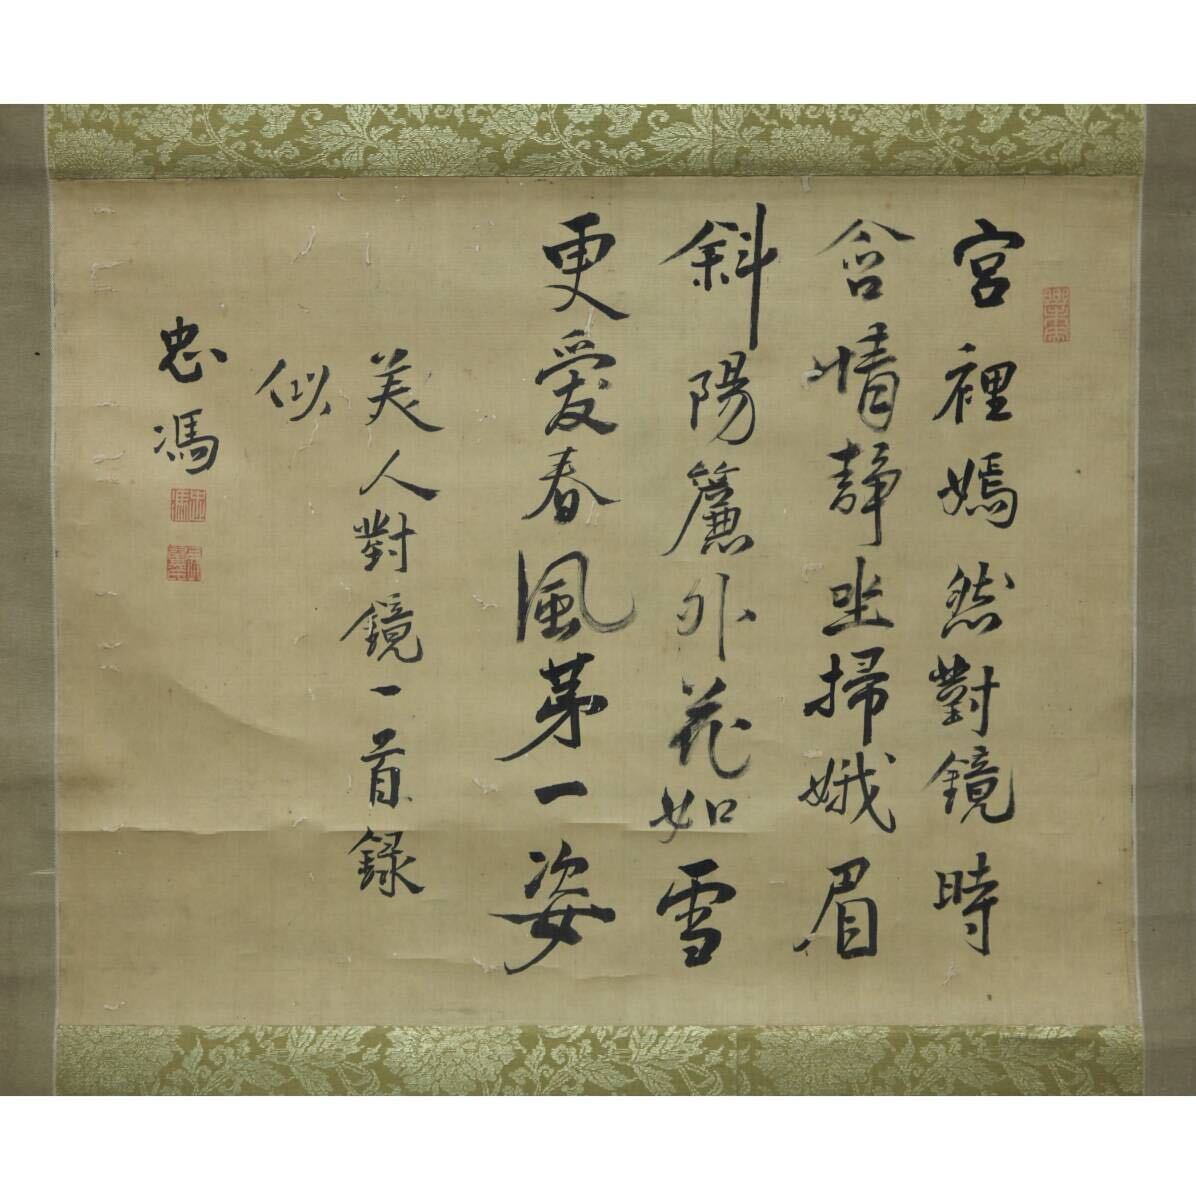 宮裡嫣然對鏡時
含情靜坐掃娥眉
斜陽簾外花如雪
更愛春風苐一姿
美人對鏡一首録
似
忠馮